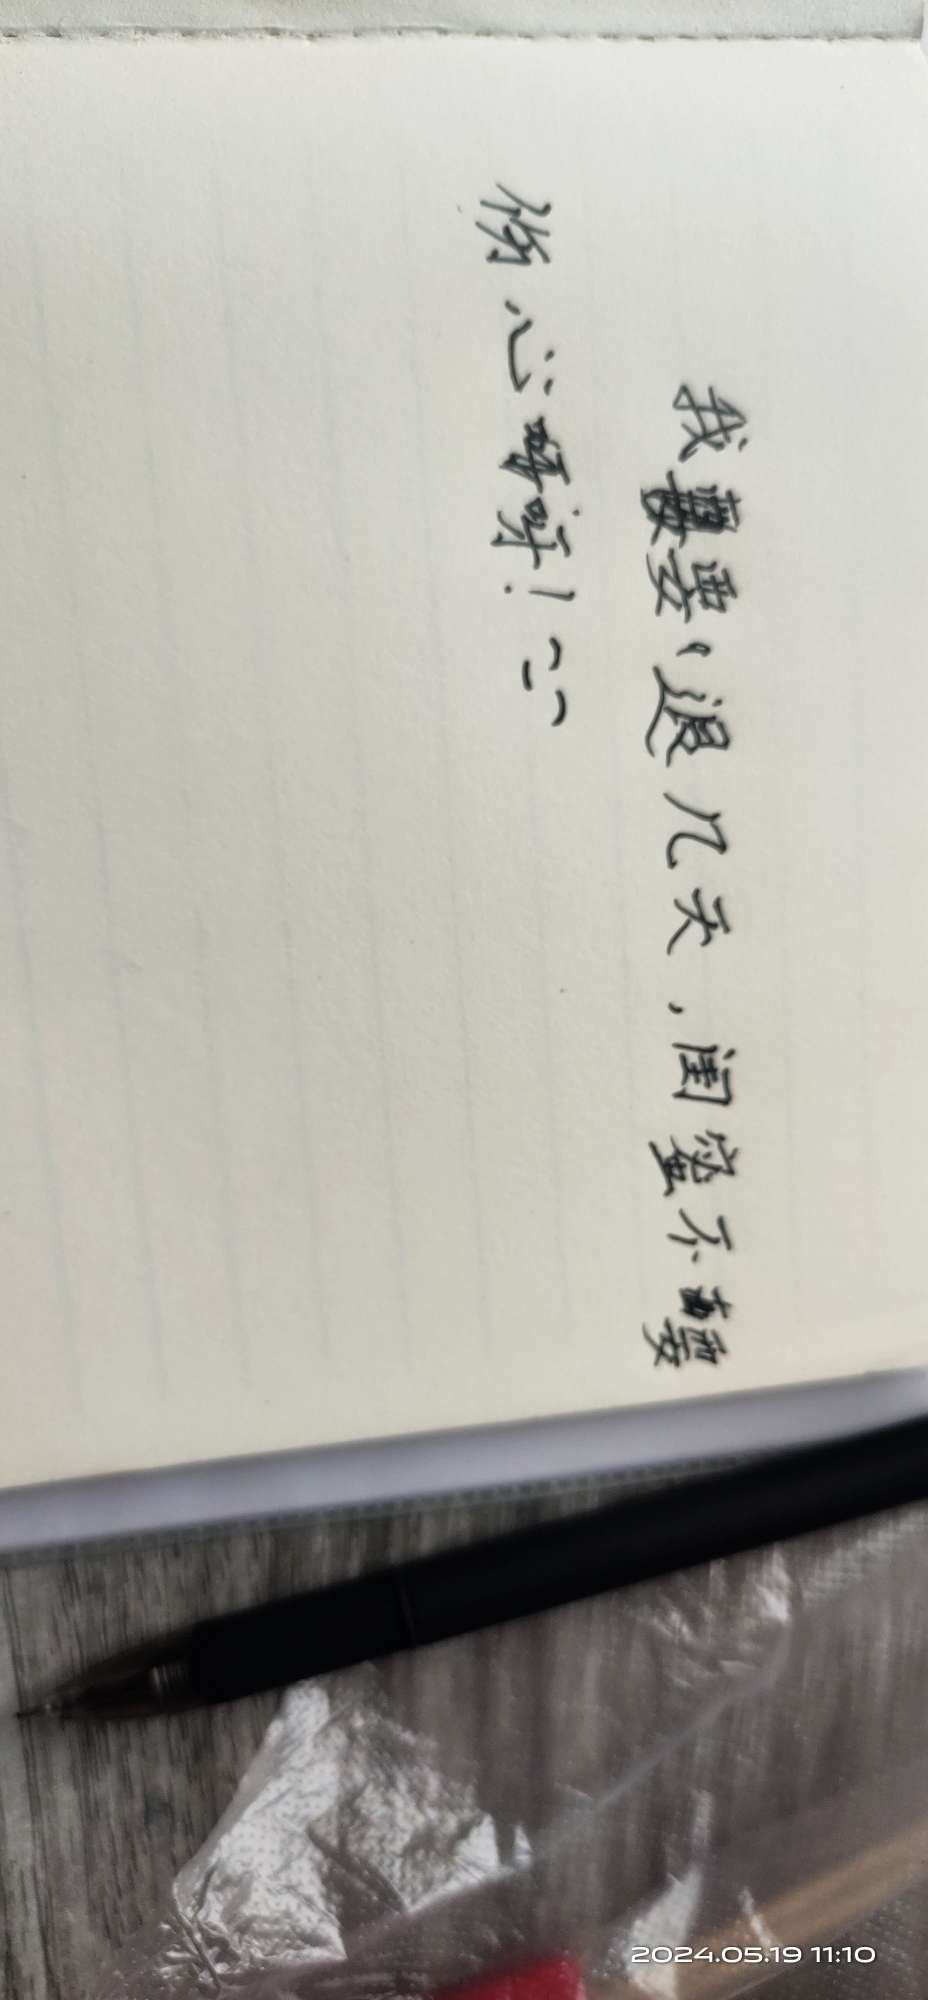 我要退几天，闺蜜不要
伤心呀！
2024.05.19 11:10